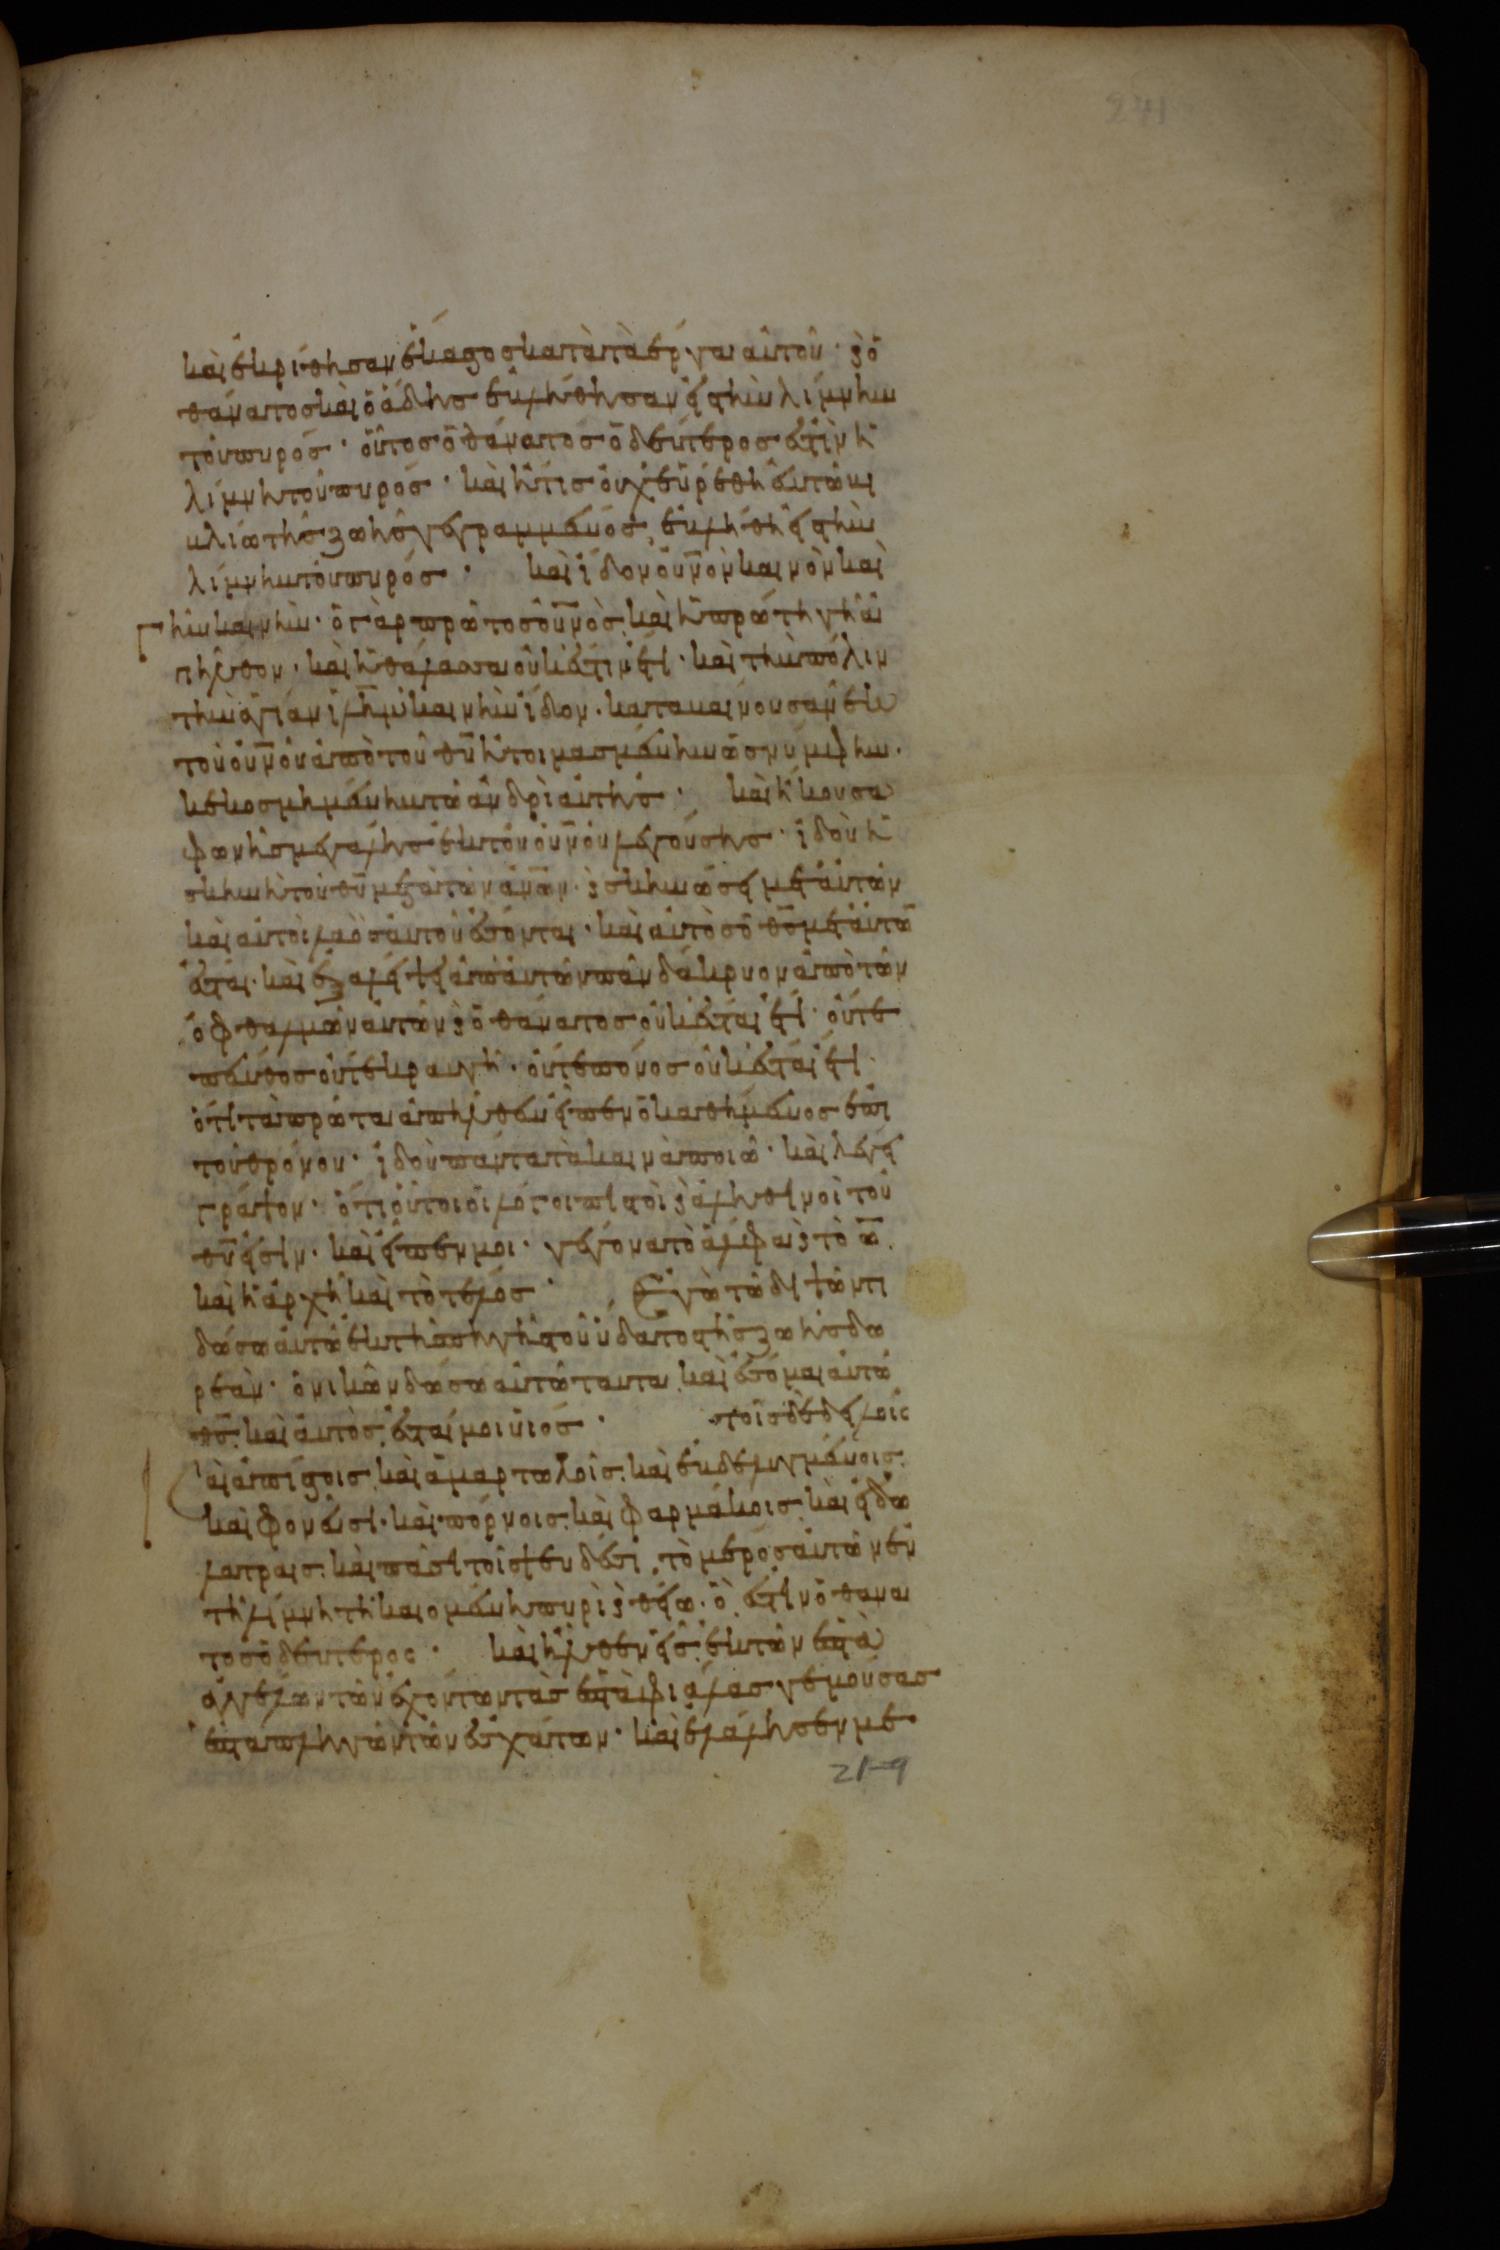 241
καὶ ἐκρίθησαν ἕκαστος κατὰ τὰ ἔργα αὐτοῦ· καὶ ὁ
θάνατος καὶ ὁ ἅδης ἐβλήθησαν εἰς τὴν λίμνην
τοῦ πυρός· οὗτος ὁ θάνατος ὁ δεύτερος ἐστὶν ἡ
λίμνη τοῦ πυρός· καὶ εἴ τις οὐχ εὑρέθη ἐν τῶ βι
βλίω τῆς ζωῆς γεγραμμένος, ἐβλήθη εἰς τὴν
λίμνην τοῦ πυρός· καὶ ἴδον οὐνον καινὸν καὶ
γῆν καινήν· ὁ γὰρ πρῶτος οὐνος καὶ ἡ πρώτη γῆ ἀ
πῆλθον· καὶ ἡ θάλασσα οὐκ ἔστιν ἔτι· καὶ τὴν πόλιν
τὴν ἁγίαν ιλημ καινὴν ἴδον· καταβαίνουσαν ἐκ
τοῦ οὐνου ἀπὸ τοῦ θυ ἡτοιμασμένην ὡς νύμφην·
κεκοσμημένην τῶ ἀνδρὶ αὐτῆς· καὶ ἤκουσα
φωνῆς μεγάλης ἐκ τοῦ οὐνου λεγούσης· ἰδοὺ ἡ
σκηνὴ τοῦ θυ μετὰ τῶν ἀνων· καὶ σκηνώσει μετ αὐτῶν
καὶ αὐτοὶ λαὸς αὐτοῦ ἔσονται· καὶ αὐτὸς ὁ θς μετ αὐτῶ
ἔσται· καὶ ἐξαλείψει ἀπ αὐτῶν πᾶν δάκρυον ἀπὸ τῶν
ὀφθαλμῶν αὐτῶν καὶ ὁ θάνατος οὐκ ἔσται ἔτι· οὔτε
πένθος οὔτε κραυγή· οὔτε πόνος οὐκ ἔσται ἔτι·
ὅτι τὰ πρῶτα ἀπῆλθεν εἶπεν ὁ καθήμενος ἐπὶ
τοῦ θρόνου· ἰδοὺ πάντα τὰ καινὰ ποιῶ· καὶ λέγει
γράψον· ὅτι οὗτοι οἱ λόγοι πιστοὶ καὶ ἀληθινοὶ τοῦ
θυ εἰσίν· καὶ εἶπεν μοι· γέγονα τὸ ἄλφα καὶ τὸ ω
καὶ ἡ ἀρχὴ καὶ τὸ τέλος· Ἐγὼ τῶ διψῶντι
δώσω αὐτῶ ἐκ τῆς πηγῆς τοῦ ὕδατος τῆς ζωῆς δω
ρεάν· ὁ νικῶν δώσω αὐτῶ ταῦτα καὶ ἔσομαι αὐτῶ
θς καὶ αὐτὸς ἔσται μοι υἱός· τοῖς δὲ δειλοῖς
καὶ ἀπίστοις καὶ ἁμαρτωλοῖς καὶ ἐβδελυγμένοις
καὶ φονεῦσι· καὶ πόρνοις καὶ φαρμάκοις καὶ εἰδω
λάτραις καὶ πᾶσι τοῖς ψευδέσι, τὸ μέρος αὐτῶν ἐν
τῆ λίμνη τῆ καιομένη πυρὶ καὶ θείω· ὅ ἐστιν ὁ θάνα
τος ὁ δεύτερος· καὶ ἦλθεν εἷς ἐκ τῶν ἑπτὰ
ἀγγέλων τῶν ἐχόντων τὰς ἑπτὰ φιάλας γεμούσας
ἑπτα πληγῶν τῶν ἐσχάτων· καὶ ἐλάλησεν με
21-9